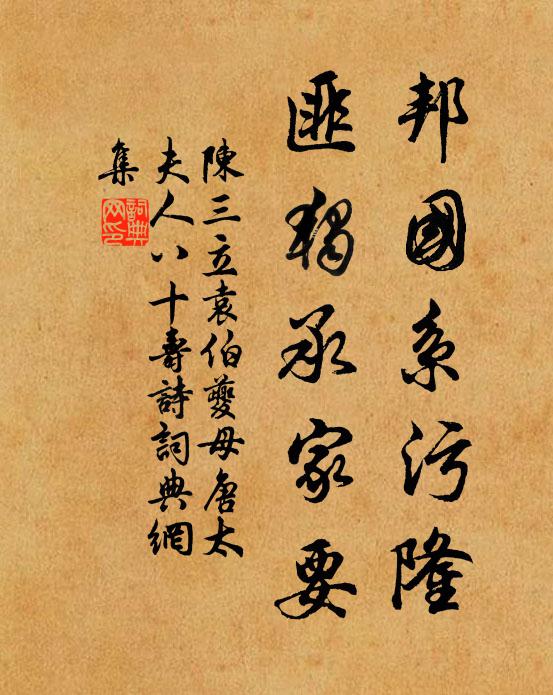 邦國系污隆
匪獨承家要
陳三立袁伯夔母唐太
夫人八十壽詩詞典網
集
詞典網印